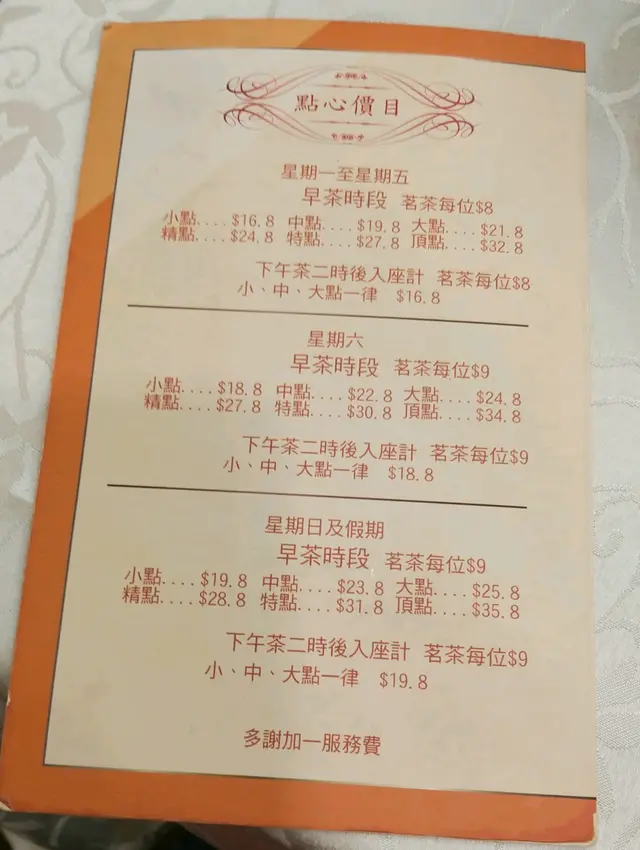 點心價目
星期一至星期五
早茶時段 茗茶每位$8
小點....$16.8 中點....$19.8 大點....$21.8
精點....$24.8 特點....$27.8 頂點....$32.8
下午茶二時後入座計 茗茶每位$8
小、中、大點一律 $16.8
星期六
早茶時段 茗茶每位$9
小點....$18.8 中點....$22.8 大點....$24.8
精點....$27.8 特點....$30.8 頂點....$34.8
下午茶二時後入座計 茗茶每位$9
小、中、大點一律 $18.8
星期日及假期
早茶時段 茗茶每位$9
小點....$19.8 中點....$23.8 大點....$25.8
精點....$28.8 特點....$31.8 頂點....$35.8
下午茶二時後入座計 茗茶每位$9
小、中、大點一律 $19.8
多謝加一服務費